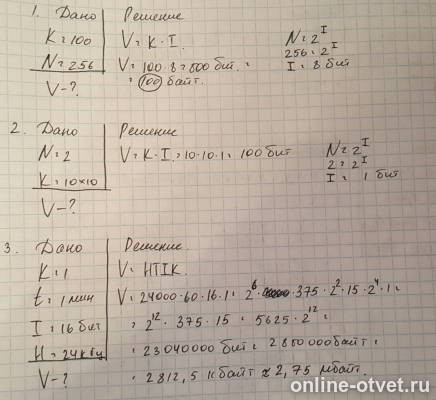 1. Дано Решение
K = 100 V = K · I. N = 2^I
N = 256 V = 100 · 8 = 800 бит = 256 = 2^I
= 100 байт. I = 8 бит
V - ?
2. Дано Решение
N = 2 V = K · I = 10 · 10 · 1 = 100 бит N = 2^I
K = 10×10 2 = 2^I
V - ? I = 1 бит
3. Дано Решение.
K = 1 V = HTIK.
t = 1 мин V = 24000 · 60 · 16 · 1 = 2^6 · 375 · 2^2 · 15 · 2^4 · 1 =
I = 16 бит = 2^12 · 375 · 15 = 5625 · 2^12 =
H = 24 кГц = 23040000 бит = 2880000 байт =
V - ? = 2812,5 кбайт ≈ 2,75 мбайт.
online-otvet.ru